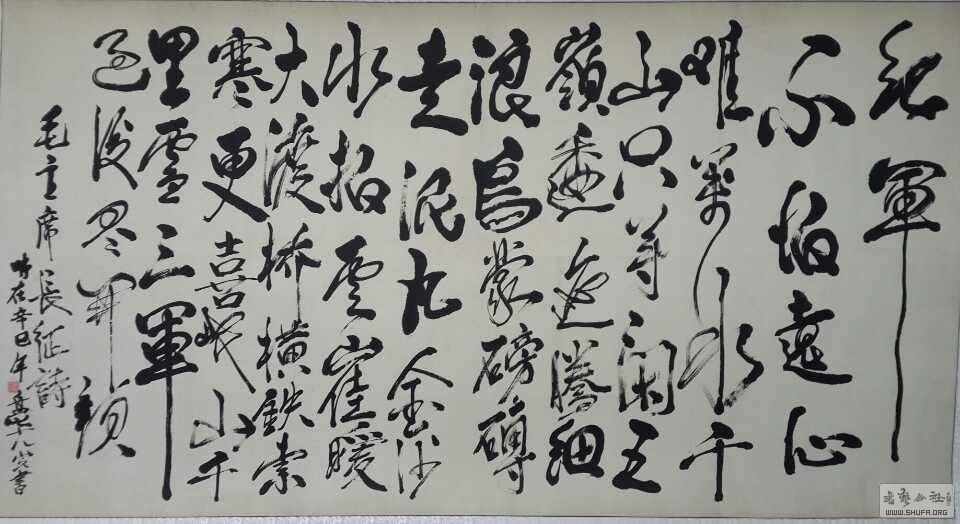 紅軍
不怕遠征
難萬水千
山只等閑五
嶺逶迤騰細
浪烏蒙磅礴
走泥丸金沙
水拍雲崖暖
大渡橋横鉄索
寒更喜岷山千
里雪三軍
過後盡開顔
毛主席長征詩
時在辛巳年 書
WWW.SHUFA.ORG